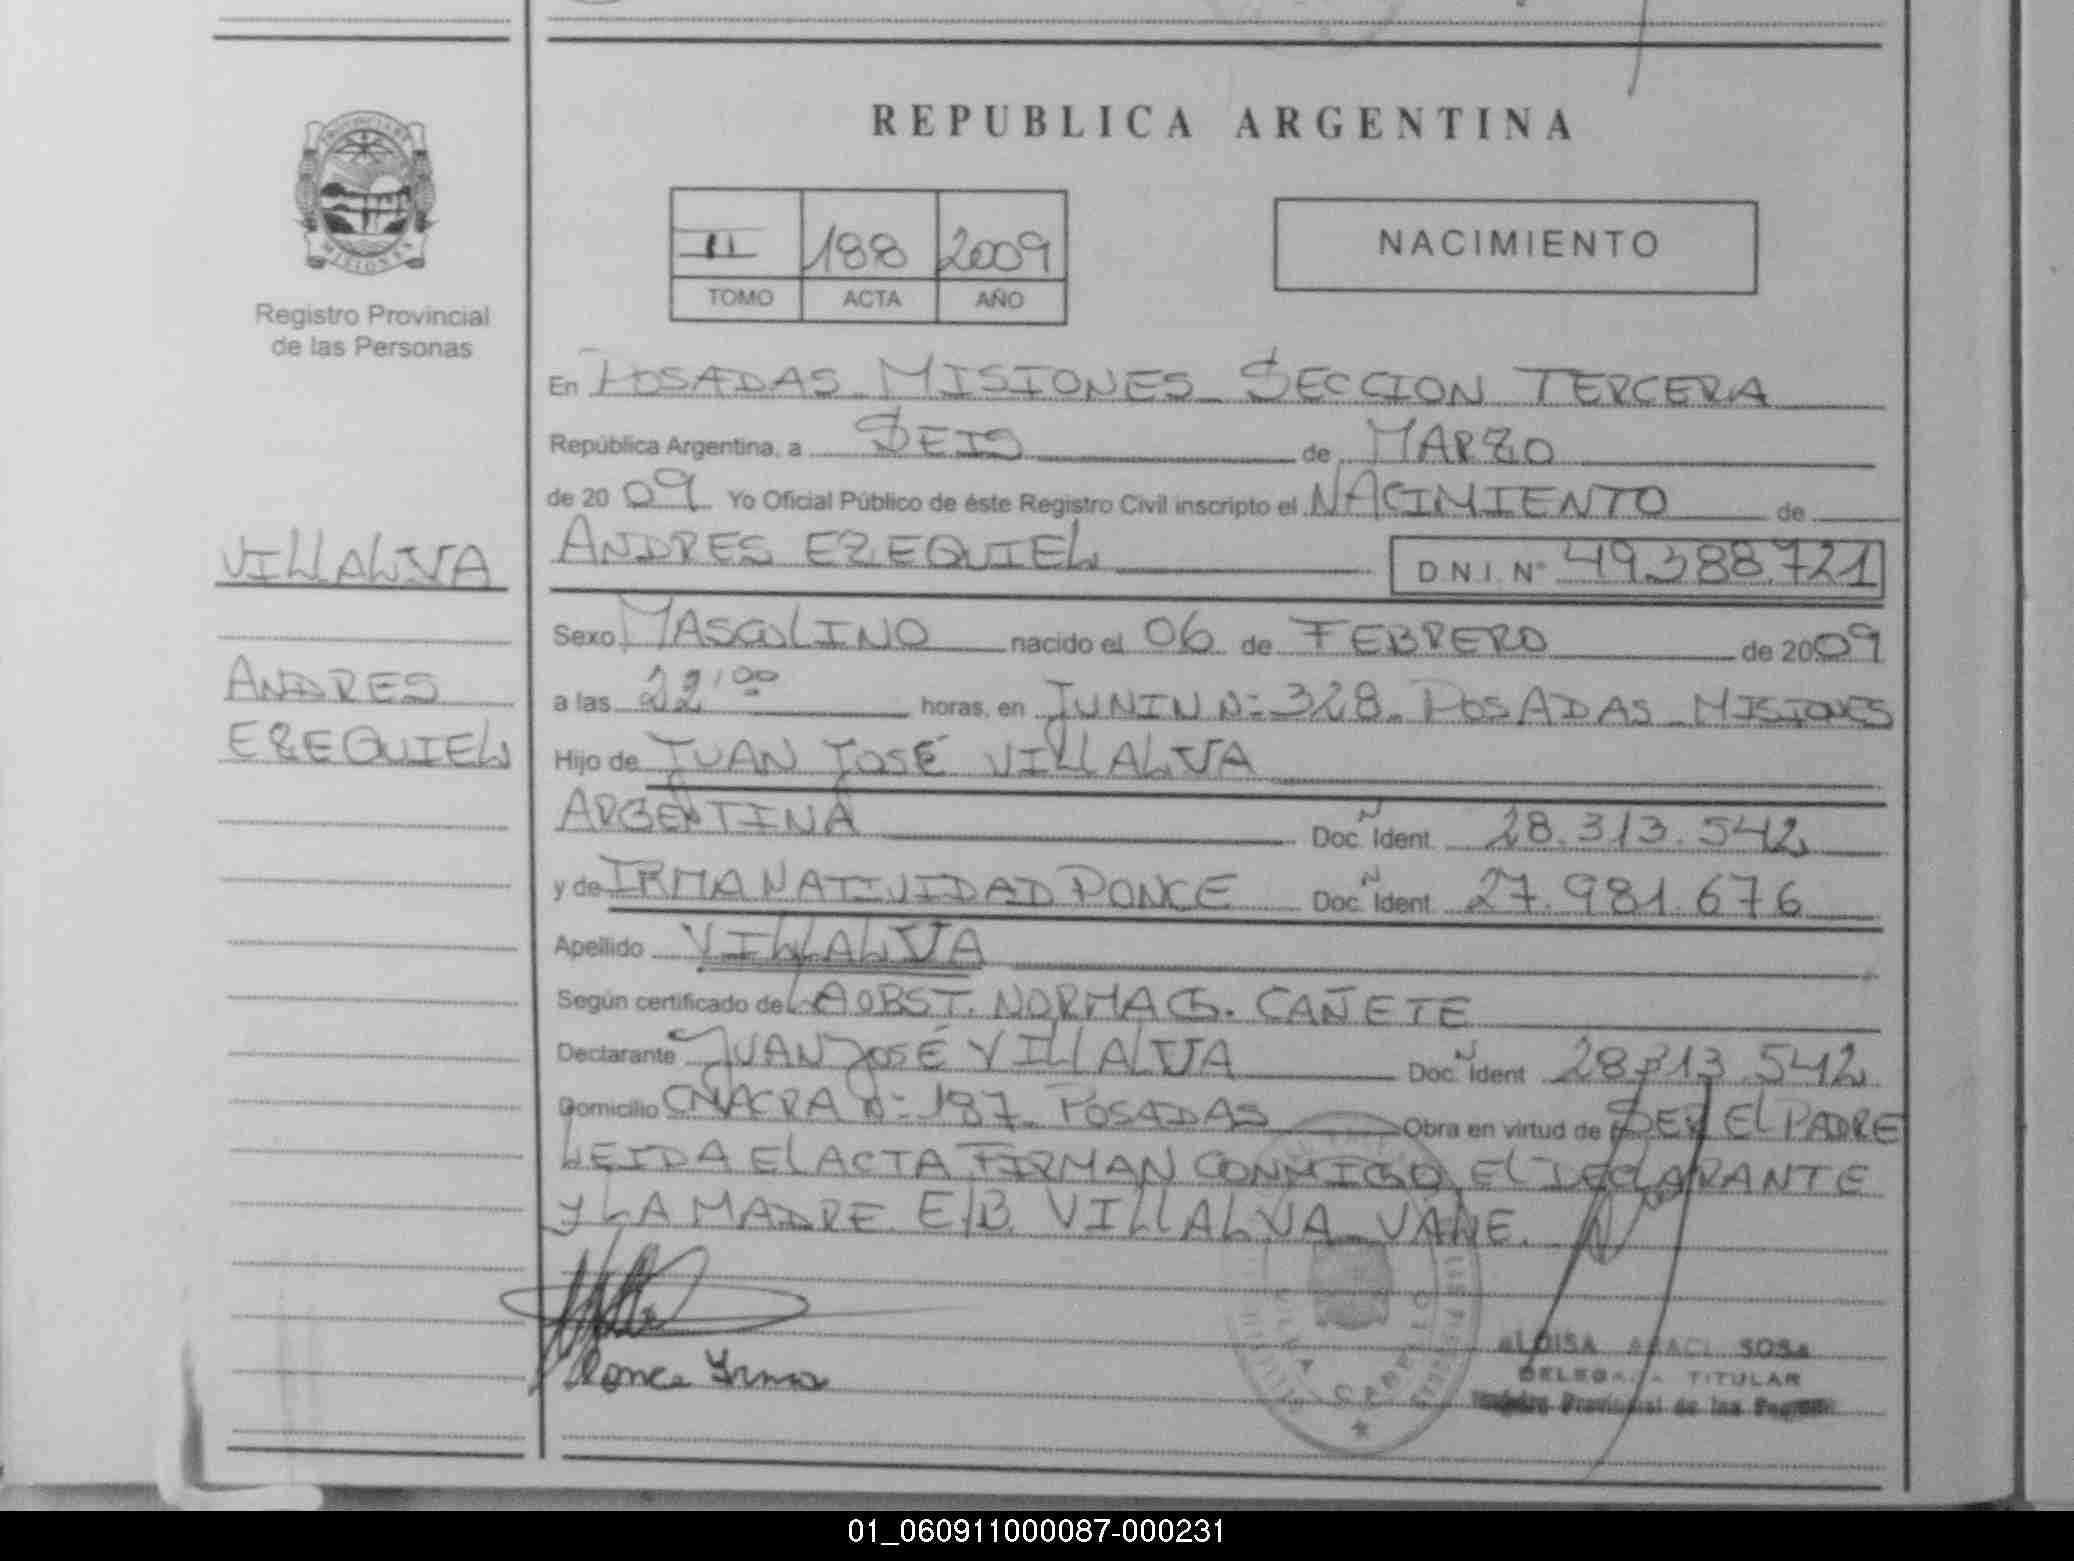 REPUBLICA ARGENTINA
PROVINCIA DE
MISIONES
Registro Provincial
de las Personas
II 188 2009
TOMO ACTA AÑO
NACIMIENTO
En POSADAS MISIONES SECCION TERCERA
República Argentina, a SEIS de MARZO
de 20 09 Yo Oficial Público de éste Registro Civil inscripto el NACIMIENTO de
VILLALVA
ANDRES EZEQUIEL D.N.I. Nº 49.388.721
Sexo MASCULINO nacido el 06 de FEBRERO de 2009
ANDRES
EZEQUIEL
a las 22'00 horas, en JUNIN Nº 328. POSADAS MISIONES
Hijo de JUAN JOSÉ VILLALVA
ARGENTINA Doc. Ñ Ident. 28.313.542
y de IRMA NATIVIDAD PONCE Doc. Ñ Ident. 27.981.676
Apellido VILLALVA
Según certificado de LA OBST. NORMA G. CAÑETE
Declarante JUAN JOSÉ VILLALVA Doc. Ident 28.313.542
Domicilio CHACRA Nº 187 POSADAS Obra en virtud de SER EL PADRE
LEIDA EL ACTA FIRMAN CONMIGO EL DECLARANTE
Y LA MADRE. E/B. VILLALVA VALE.
Ponce Irma
SOSA
DELEGADA TITULAR
Provincial de las
01_060911000087-000231